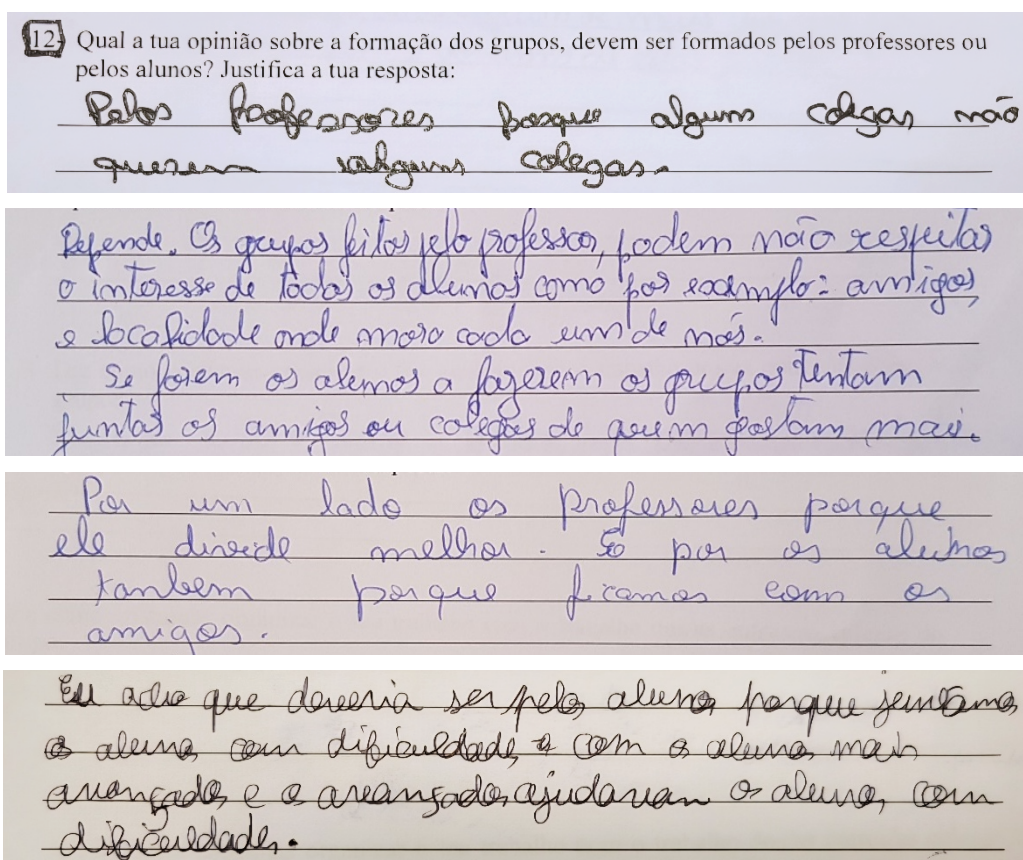 12- Qual a tua opinião sobre a formação dos grupos, devem ser formados pelos professores ou
pelos alunos? Justifica a tua resposta:
Pelos professores porque alguns colegas não
querem alguns colegas.
Depende. Os grupos feitos pelo professor, podem não respeitar
o interesse de todos os alunos como por exemplo: amigos,
e localidade onde mora cada um de nós.
Se forem os alunos a fazerem os grupos tentam
juntar os amigos ou colegas de quem gostam mais.
Por um lado os professores porque
ele divide melhor. E por os alunos
tanbem porque ficamos com os
amigos.
Eu acho que deveria ser pelos alunos porque juntamos
os alunos com dificuldades com os alunos mais
avançados e os avançados ajudavam os alunos com
dificuldades.